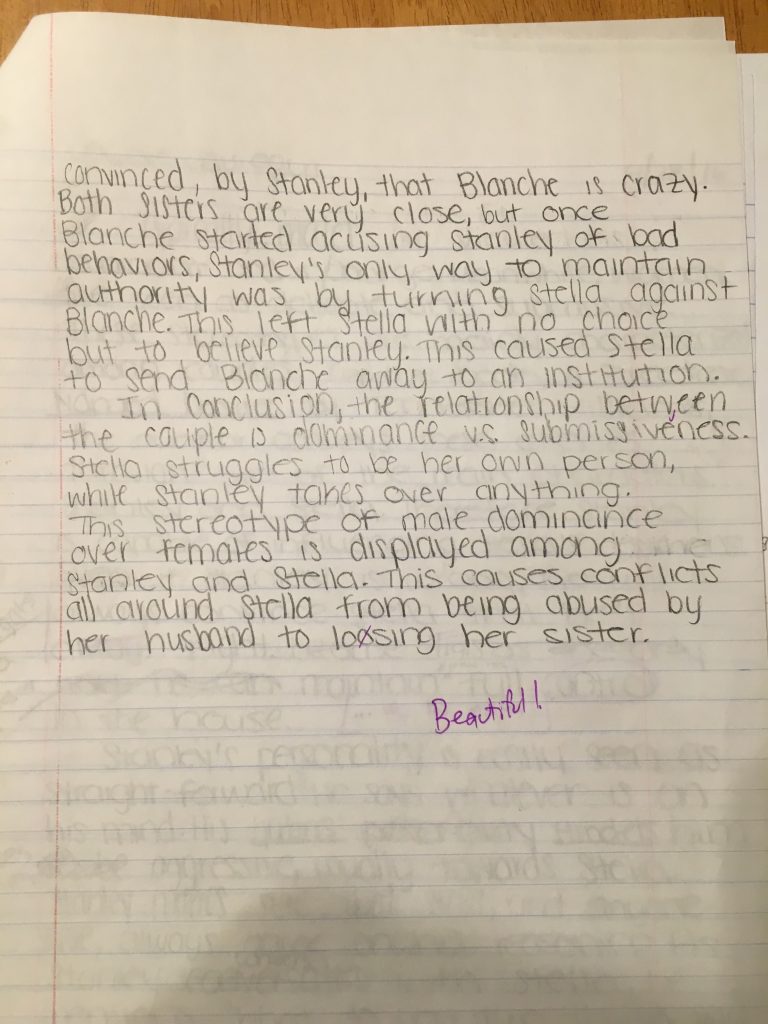 convinced, by Stanley, that Blanche is crazy.
Both sisters are very close, but once
Blanche started acusing Stanley of bad
behaviors, Stanley's only way to maintain
authority was by turning Stella against
Blanche. This left Stella with no choice
but to believe Stanley. This caused Stella
to send Blanche away to an institution.
In conclusion, the relationship between
the couple is dominance v.s. submissiveness.
Stella struggles to be her own person,
while Stanley takes over anything.
This stereotype of male dominance
over females is displayed among
Stanley and Stella. This causes conflicts
all around Stella from being abused by
her husband to losing her sister.
Beautiful!
the house.
Stanley's personality is
straight forward
his mind. His
aggressive,